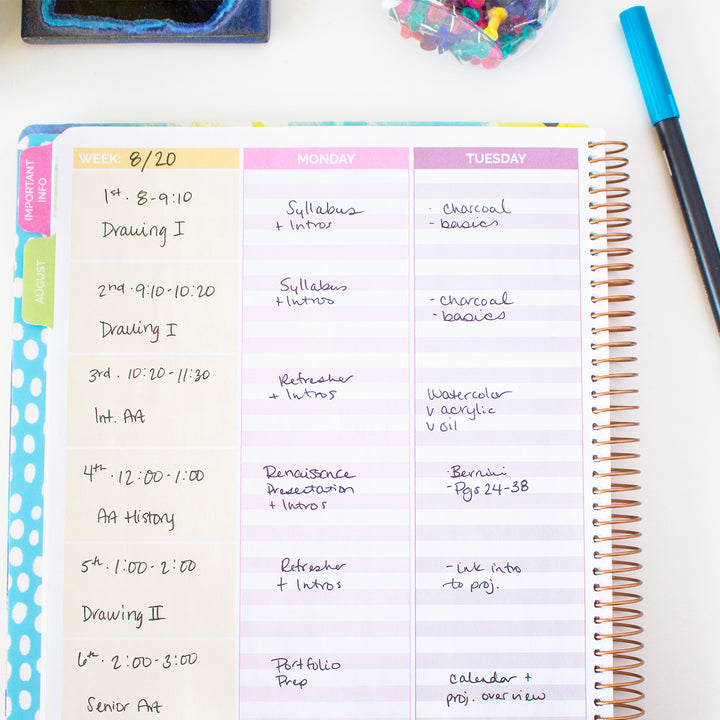 IMPORTANT
INFO
AUGUST
WEEK: 8/20
MONDAY
TUESDAY
1st. 8-9:10
Drawing I
Syllabus
+ Intros
- charcoal
- basics
2nd. 9:10-10:20
Drawing I
Syllabus
+ Intros
- charcoal
- basics
3rd. 10:20-11:30
Int. Art
Refresher
+ Intros
Watercolor
v acrylic
v oil
4th. 12:00-1:00
Art History
Renaissance
Presentation
+ Intros
- Bernini
- Pgs 24-38
5th. 1:00-2:00
Drawing II
Refresher
+ Intros
- ink intro
to proj.
6th. 2:00-3:00
Senior Art
Portfolio
Prep
calendar +
proj. overview